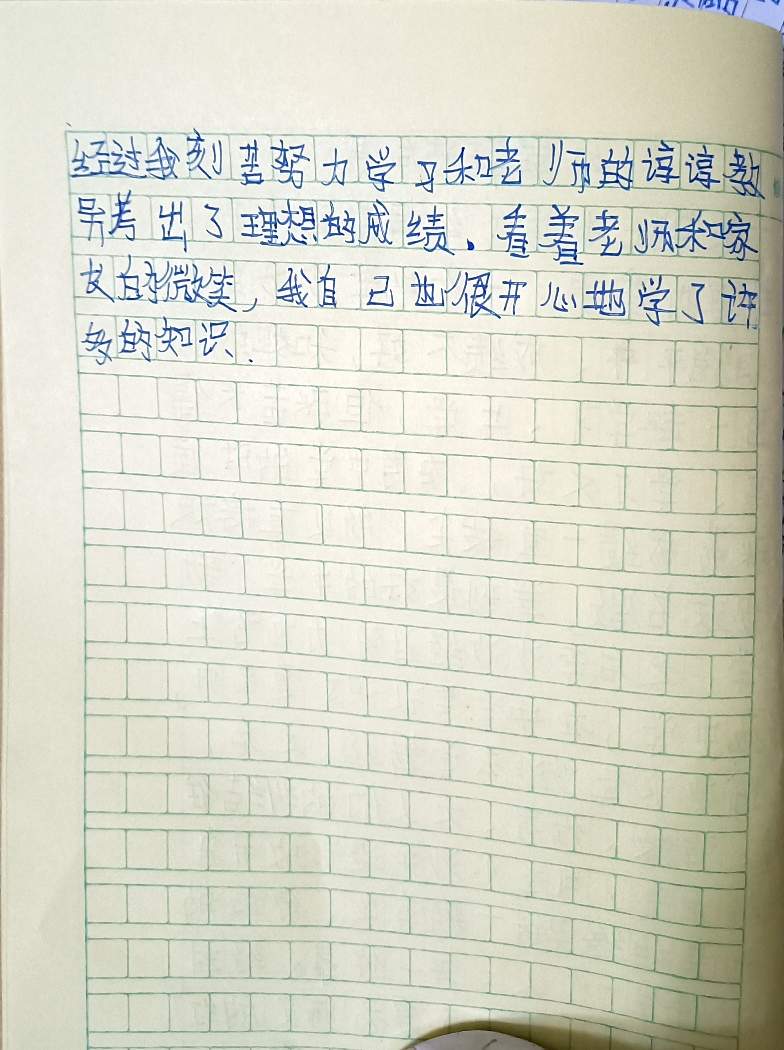 经过我刻苦努力学习和老师的谆谆教
导考出了理想的成绩.看着老师和家
长的微笑,我自己也很开心地学了许
多的知识.